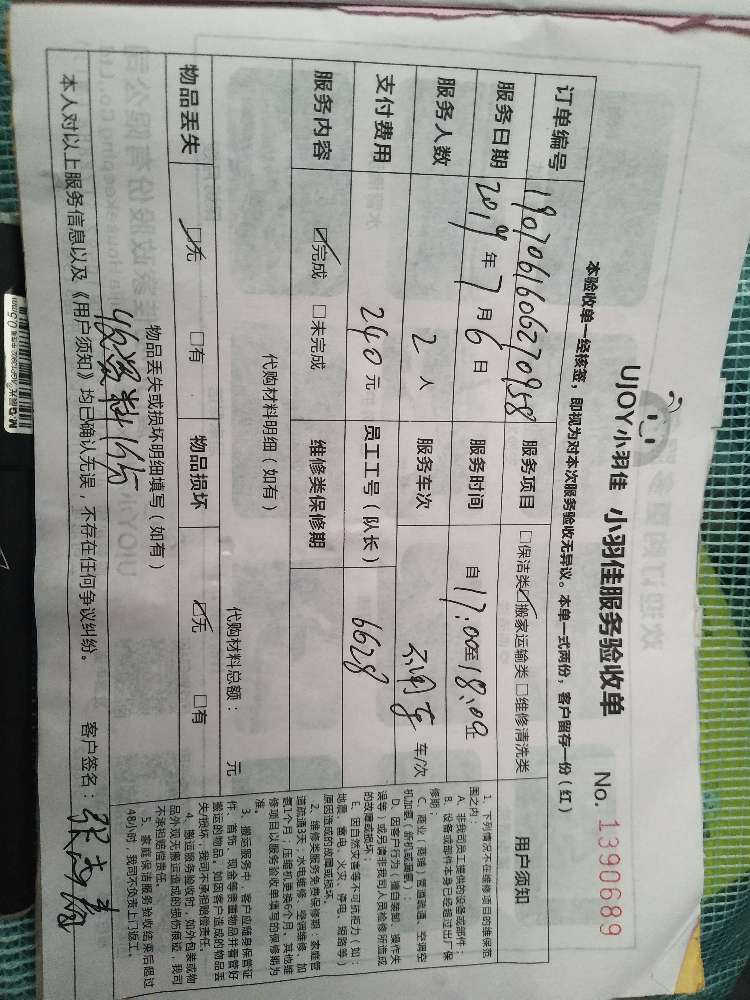 UJOY小羽佳 小羽佳服务验收单
No. 1390689
本验收单一经核签，即视为对本次服务验收无异议。本单一式两份，客户留存一份（红）
订单编号 1907061606270958 服务项目 □保洁类☑搬家运输类□维修清洗类
服务日期 2019年7月6日 服务时间 自17:00至18:00
服务人数 2人 服务车次 不用车 车/次
支付费用 240元 员工工号（队长） 6628
服务内容 ☑完成 □未完成 维修类保修期
代购材料明细（如有） 代购材料总额： 元
物品丢失 ☑无 □有 物品损坏 ☑无 □有
物品丢失或损坏明细填写（如有）
本人对以上服务信息以及《用户须知》均已确认无误，不存在任何争议纠纷。 客户签名：
用户须知
1、下列情况不在维修项目的维保范
围之内：
A、非我司员工提供的设备或部件；
B、设备或部件本身已经超过出厂保
修期；
C、商业（商铺）管道疏通、空调空
机加氨（新机或漏氨）；
D、因客户行为（擅自装卸、操作失
误等）或另请非我司人员检修所造成
的故障或损坏；
E、因自然灾害等不可抗拒力（如：
地震、雷电、火灾、停电、短路等）
原因造成的故障或损坏。
2、维修类服务免费保修期：家庭管
道疏通3天；水电维修、空调维修、加
氨1个月；压缩机更换6个月，其他维
修项目以服务验收单填写的保修期为
准。
3、搬运服务中，客户应随身保管证
件、首饰、现金等贵重物品并看管好
搬运的物品。如因客户造成的物品丢
失/损坏，我司不承担赔偿责任。
4、搬运服务验收时，如外包装或物
品外观无搬运造成的损伤痕迹，我司
不承担赔偿责任。
5、家庭保洁服务验收结束后超过
48小时，我司不负责上门返工。